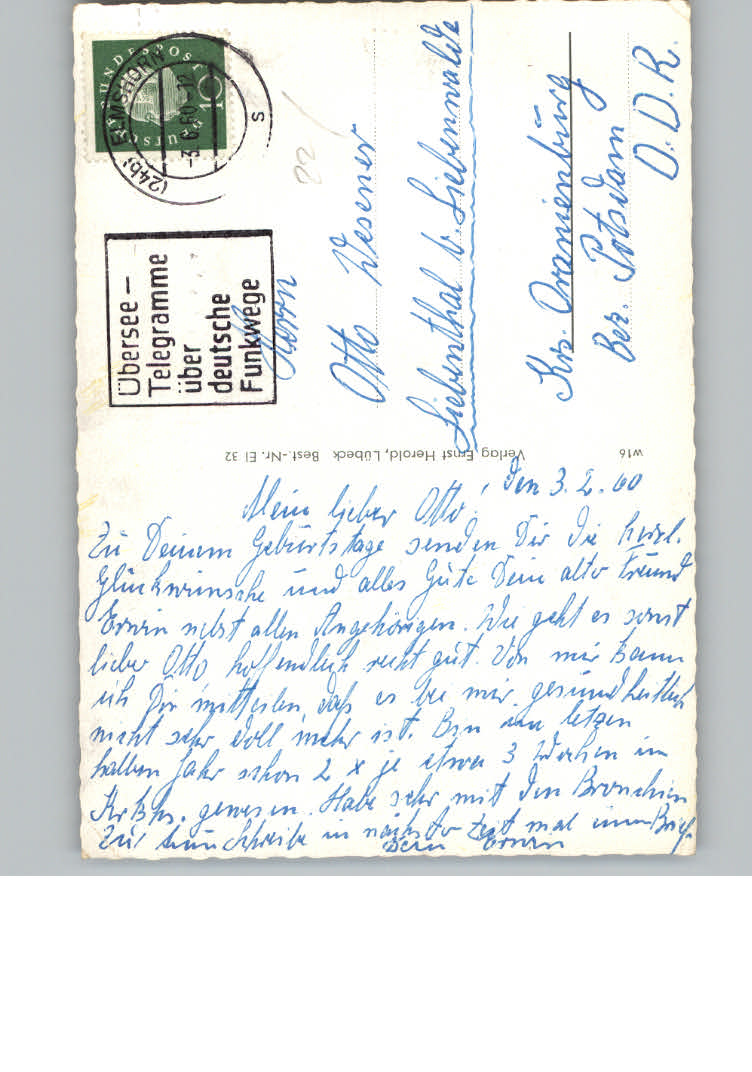 DEUTSCHE BUNDESPOST
10
(24b) ELMSHORN
-3.6.60-12
s
Übersee –
Telegramme
über
deutsche
Funkwege
22
Herrn
Otto Wesener
Liebenthal b. Liebenwalde
Krs. Oranienburg
Bez. Potsdam
D.D.R.
Verlag Ernst Herold, Lübeck Best.-Nr. El 32
W16
Den 3.2.60
Mein lieber Otto!
Zu Deinem Geburtstage senden Dir die herzl.
Glückwünsche und alles Gute Dein alter Freund
Erwin nebst allen Angehörigen. Wie geht es sonst
lieber Otto hoffendlich recht gut. Von mir kann
ich Dir mitteilen daß es bei mir gesundheitlich
nicht sehr doll mehr ist. Bin im letzen
halben Jahr schon 2 x je etwa 3 Wochen im
Krkhs. gewesen. Habe sehr mit den Bronchien
zu tun Schreibe in nächster Zeit mal einen Brief.
Dein Erwin